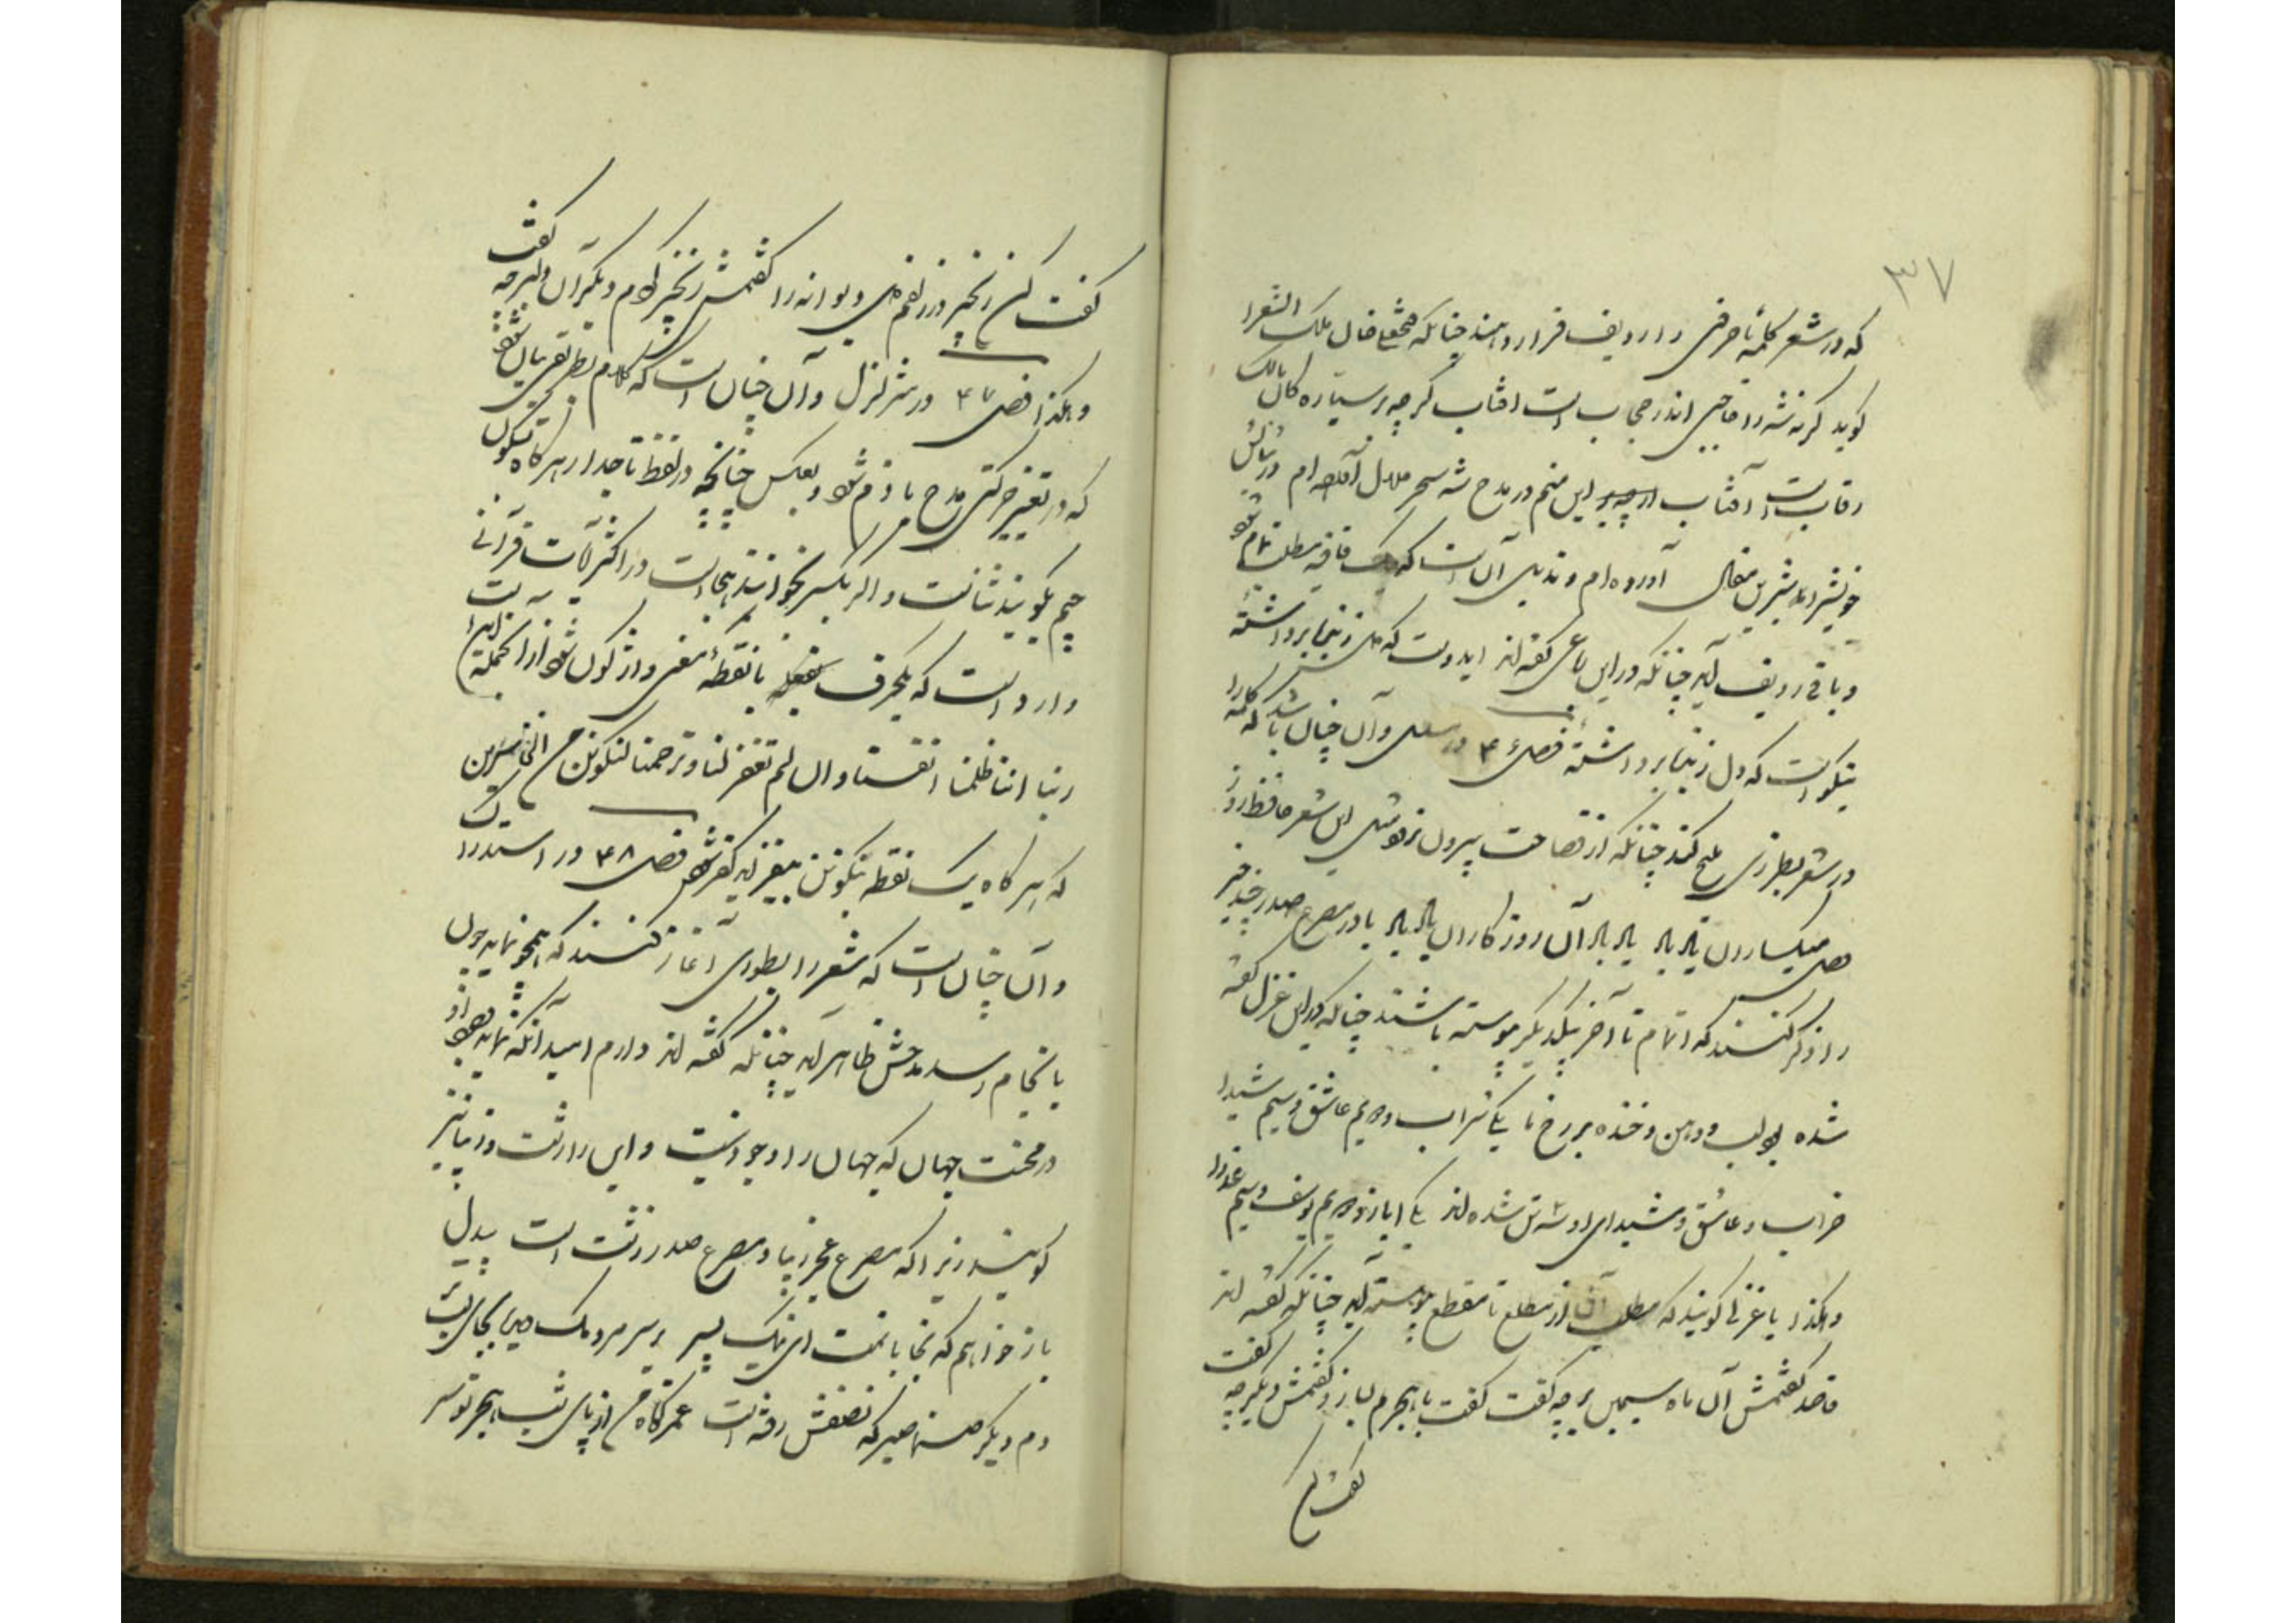 ۳۷
که در شعر کلمهٔ یا حرفی را ردیف قرار دهند چنانکه فتحعلی خان ملک الشعرا
گوید گرنه شه را حاجبی اندر حجاب است آفتاب گرچه بر سیاره کان مالک
رقاب است آفتاب این منم در مدح شه سحر حلال آورده ام
خویش را شیرین مقال آورده ام و آن است که یک قافیه مطلب تمام شود
و باقی ردیف آید چنانکه در این رباعی گفته اند این دوست که دل ز بنده برداشتهٔ
نیکو است که دل ز بنده برداشتهٔ فصل ۴ در و آن چنان باشد که کلمه را
در شعر بطرزی ملیح کند چنانکه از فصاحت بیرون نرود مثل این شعر حافظ روز
وصل میکساران یاد باد یاد باد آن روزگاران یاد باد یا در مصرع صدر چند چیز
را ذکر کنند که اتمام تا آخر بیکدیگر پیوسته باشند چنانکه در این غزل گفته
شده بود لب و دهن و خنده بر رخ ما یکی شراب دویم عاشق و سیم شیدا
خراب و عاشق و شیدای او سه تن شده اند یکی ایاز و دویم یوسف و سیم عذرا
و هکذا یا غزلی گویند که مطلب آن از مطلع تا مقطع پیوسته آید چنانکه گفته اند
قاصد گفتمش آن ماه سیمین بر چه گفت گفت با هجرم بسازد گفتمش دیگر چه گفت
گفت کن
گفت کن زنجیر در زلفم دل دیوانه را گفتمش زنجیر کردم دیگر آن دلبر چه گفت
و هکذا فصل ۴۷ در شرح لزل و آن چنان است که کلام بطریقی بیان شود
که در تغییر حرکتی مدح یا ذم شود و بعکس چنانچه در لفظ تاجدار هر گاه بسکون
جیم بگویند ثنا است و اگر بکسر بخوانند هجا است و در اکثر آیات قرآنی
وارد است که یکحرف یا نقطهٔ معنی واژگون شود از آنجمله این آیت
ربنا اننا ظلمنا انفسنا و ان لم تغفر لنا و ترحمنا لنکونن من الخاسرین
که هر گاه یک نقطه بنکونن بیفزاید کفر شود فصل ۴۸ در استدراک
و آن چنان است که شعر را بطوری آغاز کنند که هجو نماید چون
بانجام رسد مدحش ظاهر آید چنانکه گفته اند دارم امید آنکه نماید وجود او
در محنت جهان که جهان را وجود نیست و این را زشت و زیبا نیز
گویند زیرا که مصرع عجز زیبا و مصرع صدر زشت است
باز خواهم که نجابانمت ای نیک پسر بر سر مردمک
دم دیگر صنما صبر که نصفش رفته است عمر کوتاه من از پای شب هجر تو سر